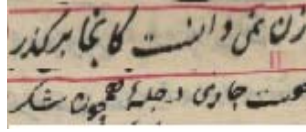 زن نمی دانست کانجا برگذر
هست جاری دجلهٔ همچون شکر